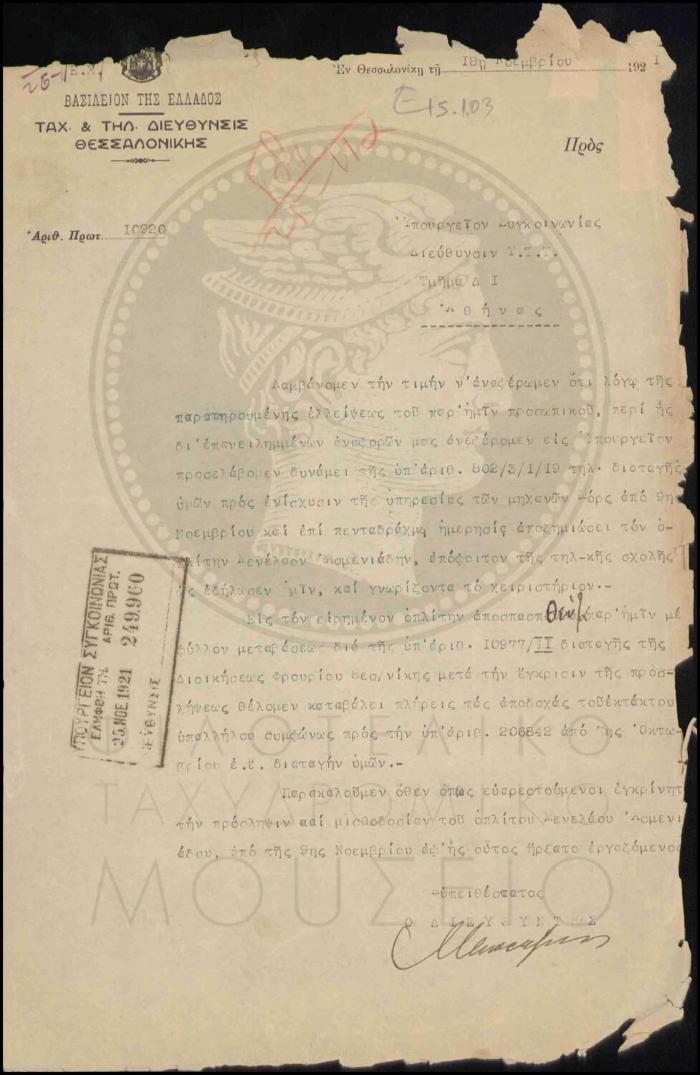 Ἐν Θεσσαλονίκῃ τῇ 18η Νοεμβρίου 1921
ΒΑΣΙΛΕΙΟΝ ΤΗΣ ΕΛΛΑΔΟΣ
ΤΑΧ. & ΤΗΛ. ΔΙΕΥΘΥΝΣΙΣ
ΘΕΣΣΑΛΟΝΙΚΗΣ
Ε15.1.03
Πρὸς
Ἀριθ. Πρωτ. 10920
Ὑπουργεῖον Συγκοινωνίας
Διεύθυνσιν Τ.Τ.Τ.
Τμῆμα Δ Ι
Ἀθήνας
Λαμβάνομεν τήν τιμήν ν'ἀναφέρωμεν ὅτι λόγῳ τῆς
παρατηρουμένης ἐλλείψεως τοῦ παρ'ἡμῖν προσωπικοῦ, περί ἧς
δι'ἐπανειλημμένων ἀναφορῶν μας ἀνεφέρομεν εἰς Ὑπουργεῖον
προσελάβομεν δυνάμει τῆς ὑπ'ἀριθ. 802/3/1/19 τηλ. διαταγῆς
ὑμῶν πρός ἐνίσχυσιν τῆς ὑπηρεσίας τῶν μηχανῶν από 9ης
Νοεμβρίου καί ἐπί πενταδράχμῳ ἡμερησίᾳ ἀποζημιώσει τόν ὁ-
πλίτην Μενέλαον Ἀσμενιάδην, ἀπόφοιτον τῆς τηλ-κῆς σχολῆς
ὡς ἐδήλωσεν ἡμῖν, καί γνωρίζοντα τό χειριστήριον.-
Εἰς τόν εἰρημένον ὁπλίτην ἀποσπασθέντα παρ'ἡμῖν μέ
φύλλον μεταβάσεως διά τῆς ὑπ'ἀριθ. 10977/ΙΙ διαταγῆς τῆς
Διοικήσεως Φρουρίου Θεσ/νίκης μετά τήν ἔγκρισιν τῆς προσ-
λήψεως θέλομεν καταβάλει πλήρεις τάς ἀποδοχάς τοῦἐκτάκτου
ὑπαλλήλου συμφώνως πρός τήν ὑπ'ἀριθ. 206842 ἀπό 1ης Ὀκτω-
βρίου ἐ.ἔ. διαταγήν ὑμῶν.-
Παρακαλοῦμεν ὅθεν ὅπως εὐαρεστούμενοι ἐγκρίνητ
τήν πρόσληψιν καί μισθοδοσίαν τοῦ ὁπλίτου Μενελάου Ἀσμενι
άδου, ἀπό τῆς 9ης Νοεμβρίου ἀφ'ἧς οὗτος ἤρξατο ἐργαζόμενος
Εὐπειθέστατος
Ο ΔΙΕΥΘΥΝΤΗΣ
ΥΠΟΥΡΓΕΙΟΝ ΣΥΓΚΟΙΝΩΝΙΑΣ
ΕΛΗΦΘΗ ΤΗ ΑΡΙΘ. ΠΡΩΤ.
25 ΝΟΕ 1921 249.960
ΔΙΕΥΘΥΝΣΙΣ
ΦΙΛΟΤΕΛΙΚΟ
ΤΑΧΥΔΡΟΜΙΚΟ
ΜΟΥΣΕΙΟ